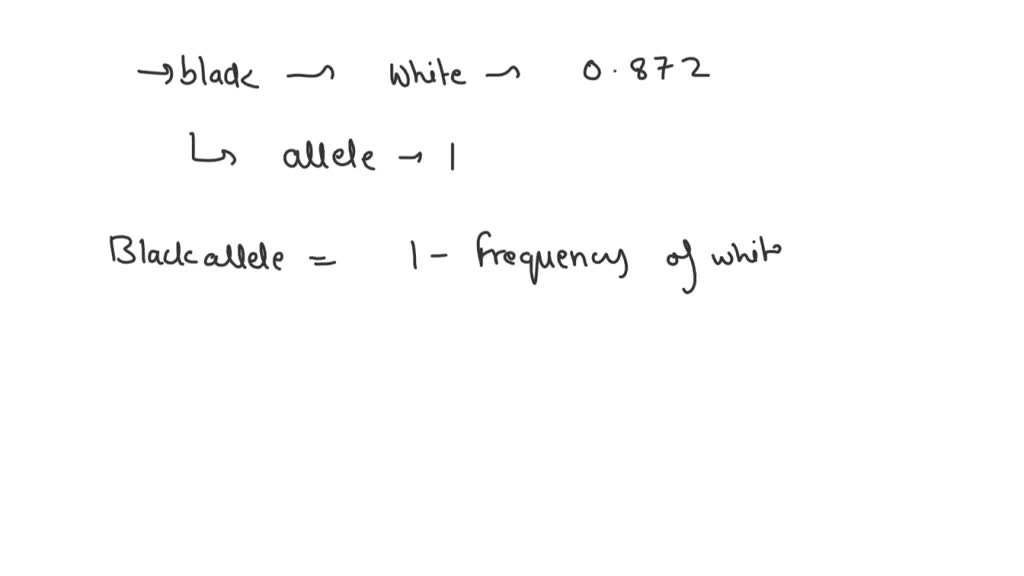 → black → white → 0.872
↳ allele → 1
Black allele = 1 - frequency of white